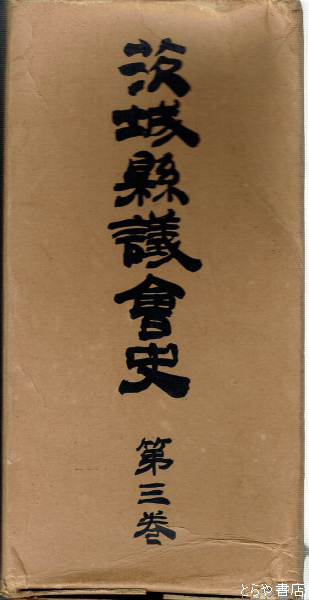 茨城縣議會史
第三巻
© とらや書店